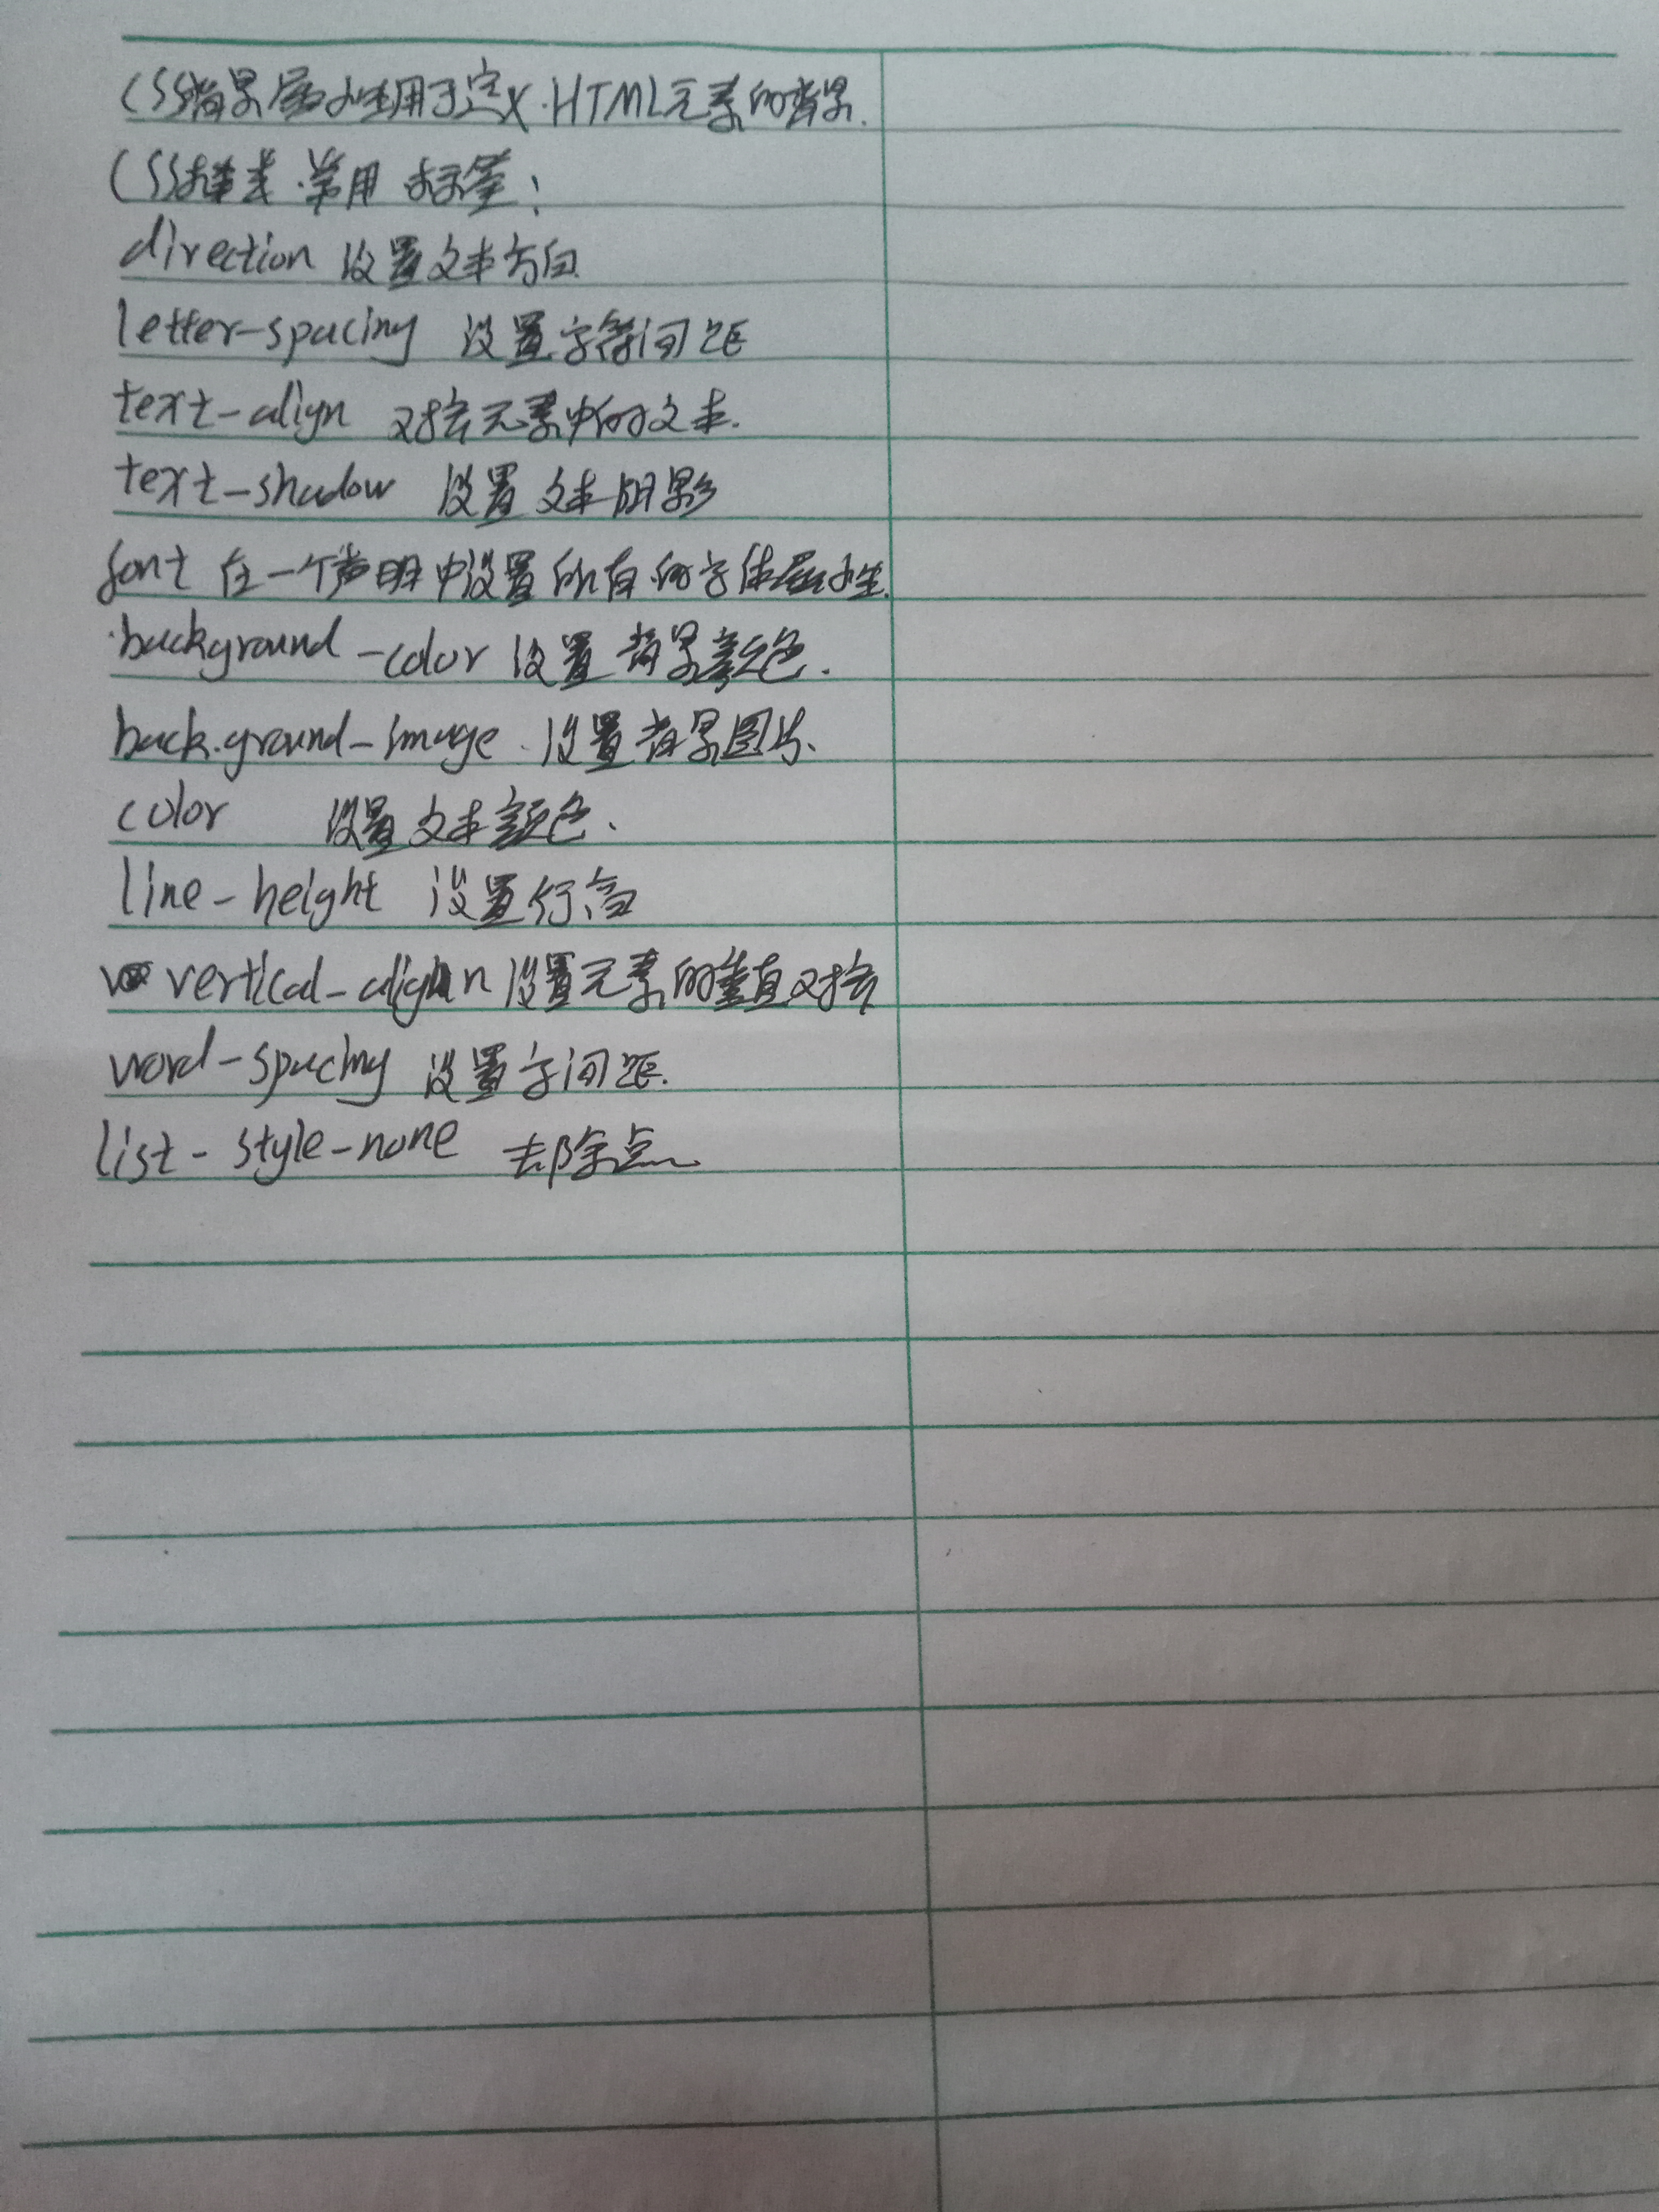 CSS背景属性用于定义.HTML元素的背景.
CSS样式.常用 标签:
direction 设置文本方向
letter-spacing 设置字符间距
text-align 对齐元素中的文本.
text-shadow 设置文本阴影
font 在一个声明中设置所有的字体属性.
background-color 设置背景颜色.
back.ground-image.设置背景图片.
color 设置文本颜色.
line-height 设置行高
vertical-align 设置元素的垂直对齐
word-spacing 设置字间距.
list-style-none 去除点